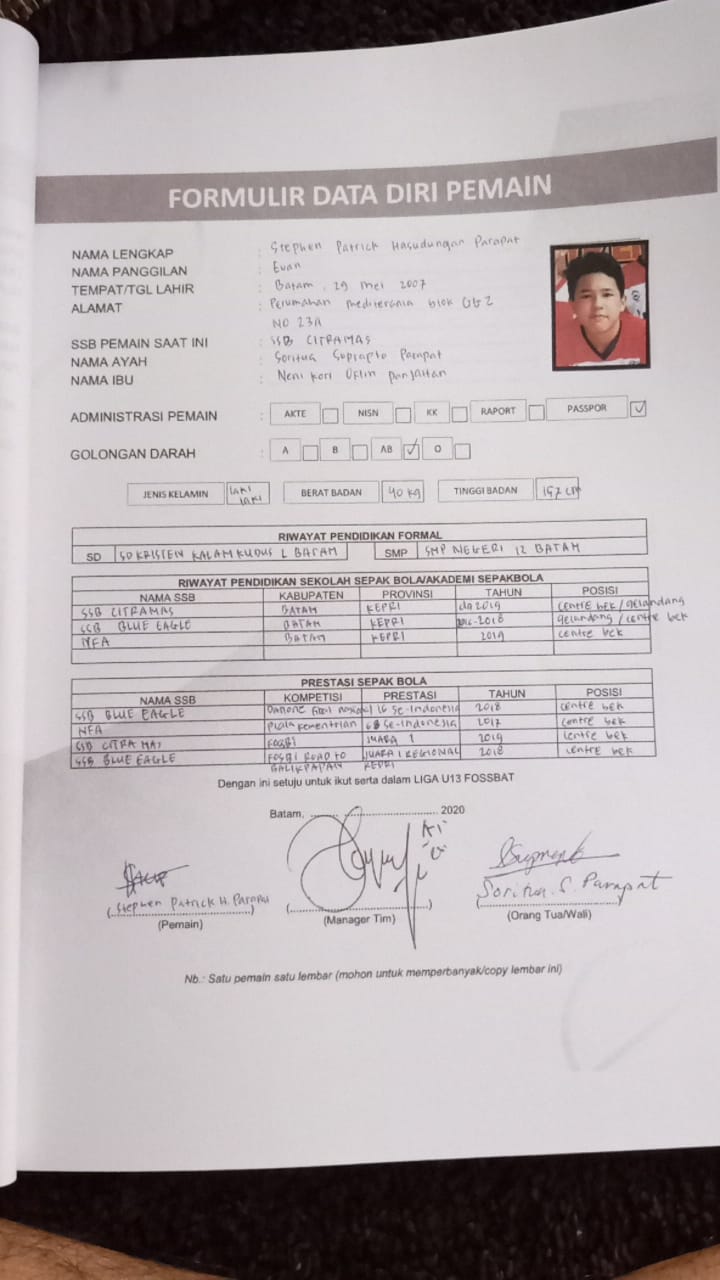 FORMULIR DATA DIRI PEMAIN
NAMA LENGKAP : Stephen Patrick Hasudungan Parapat
NAMA PANGGILAN : Evan
TEMPAT/TGL LAHIR : Batam, 29 mei 2007
ALAMAT : Perumahan mediterania blok GG2
NO 23A
SSB PEMAIN SAAT INI : SSB CITRAMAS
NAMA AYAH : Soritua Soprapto Parapat
NAMA IBU : Neni Panjaitan
ADMINISTRASI PEMAIN : AKTE NISN KK RAPORT PASSPOR ✓
GOLONGAN DARAH : A B AB ✓ O
JENIS KELAMIN laki laki BERAT BADAN 40 kg TINGGI BADAN 157 cm
RIWAYAT PENDIDIKAN FORMAL
SD SD KRISTEN KALAM KUDUS BATAM SMP SMP NEGERI 12 BATAM
RIWAYAT PENDIDIKAN SEKOLAH SEPAK BOLA/AKADEMI SEPAKBOLA
NAMA SSB KABUPATEN PROVINSI TAHUN POSISI
SSB CITRAMAS BATAM KEPRI 2019 centre bek/gelandang
SSB BLUE EAGLE BATAM KEPRI -2018 gelandang/centre bek
NFA BATAM KEPRI 2019 centre bek
PRESTASI SEPAK BOLA
NAMA SSB KOMPETISI PRESTASI TAHUN POSISI
SSB BLUE EAGLE Danone nasional 16 Se-Indonesia 2018 centre bek
NFA Piala Kementrian Se-Indonesia 2017 centre bek
SSB CITRA MAS FOSSBI JUARA 1 2019 centre bek
SSB BLUE EAGLE FOSBI ROAD TO JUARA 1 REGIONAL 2018 centre bek
BALIKPAPAN KEPRI
Dengan ini setuju untuk ikut serta dalam LIGA U13 FOSSBAT
Batam, .................................................. 2020
Stephen Patrick H. Parapat
Soritua. S. Parapat
(Pemain) (Manager Tim) (Orang Tua/Wali)
Nb.: Satu pemain satu lembar (mohon untuk memperbanyak/copy lembar ini)